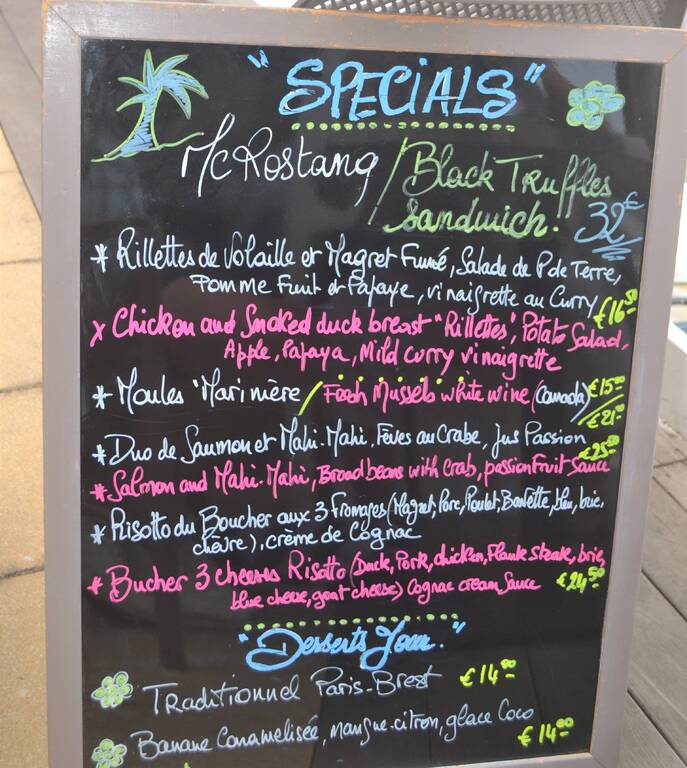 "SPECIALS"
McRostang / Black Truffles
Sandwich. 32€
* Rillettes de Volaille et Magret Fumé, Salade de P. de Terre,
Pomme Fruit et Papaye, vinaigrette au Curry €16.50
x Chicken and Smoked duck breast "Rillettes", Potato Salad,
Apple, Papaya, Mild Curry vinaigrette
* Moules "Marinière / Fresh Mussels white wine (Canada) €15.00
/ €21.00
* Duo de Saumon et Mahi-Mahi, Fèves au Crabe, jus Passion €25.50
* Salmon and Mahi-Mahi, Broad beans with crab, passion Fruit Sauce
* Risotto du Boucher aux 3 fromages (Magret, Porc, Poulet, Bavette, bleu, brie,
chèvre), crème de Cognac
* Bucher 3 cheeses Risotto (Duck, Pork, chicken, Flank Steak, brie,
blue cheese, goat cheese) Cognac cream Sauce €24.50
"Desserts Jour."
Traditionnel Paris-Brest €14.00
Banane Caramelisée, mangue-citron, glace Coco €14.00